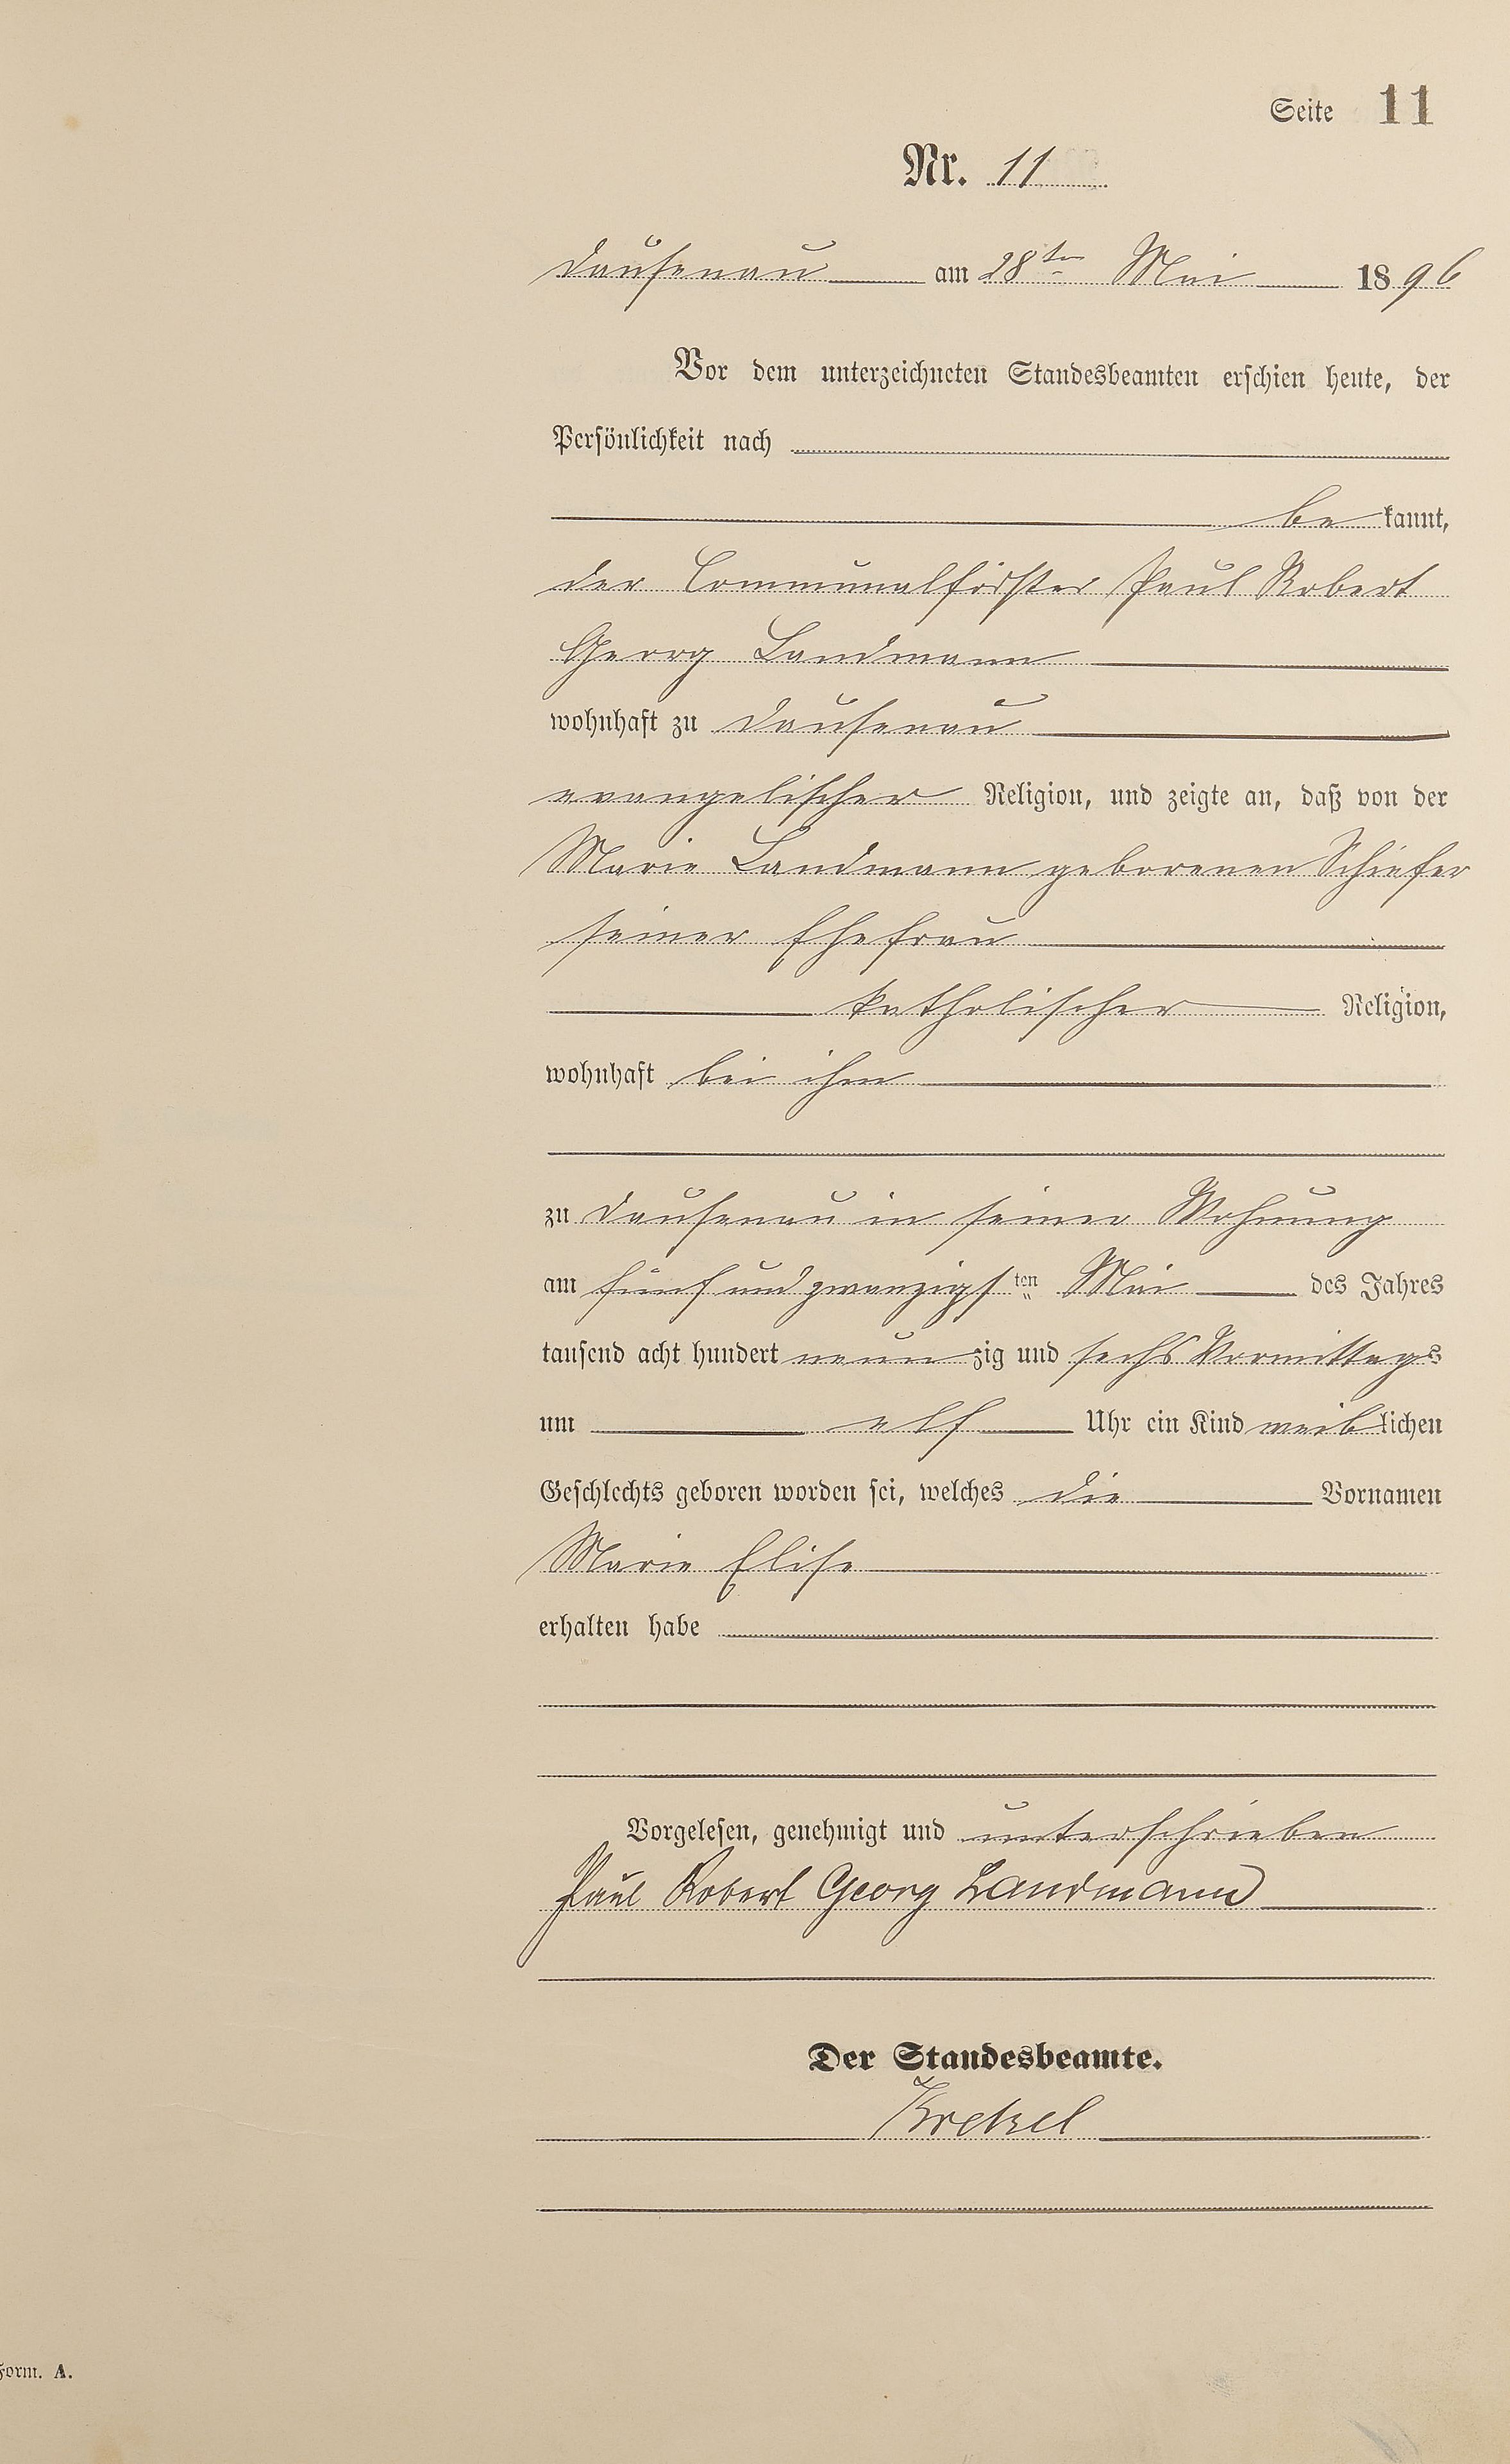 Seite 11
Nr. 11
Dausenau am 28ten Mai 1896
Vor dem unterzeichneten Standesbeamten erschien heute, der
Persönlichkeit nach
be kannt,
der Communalförster Paul Robert
Georg Landmann
wohnhaft zu Dausenau
evangelischer Religion, und zeigte an, daß von der
Marie Landmann geborenen Schiefer
seiner Ehefrau
katholischer Religion,
wohnhaft bei ihm
zu Dausenau in seiner Wohnung
am fünf und zwanzigsten Mai des Jahres
tausend acht hundert neunzig und sechs Vormittags
um elf Uhr ein Kind weiblichen
Geschlechts geboren worden sei, welches die Vornamen
Marie Elise
erhalten habe
Vorgelesen, genehmigt und unterschrieben
Paul Robert Georg Landmann
Der Standesbeamte.
Form. A.